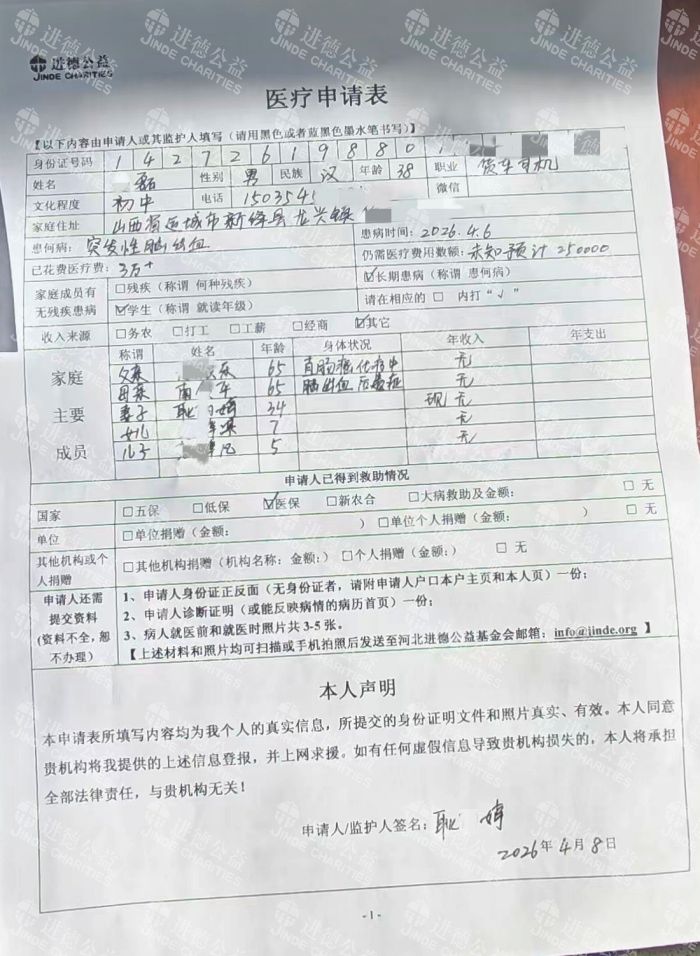 进德公益
JINDE CHARITIES
医疗申请表
【以下内容由申请人或其监护人填写（请用黑色或者蓝黑色墨水笔书写）】
身份证号码 1 4 2 7 2 6 1 9 8 8 0
姓名 磊 性别 男 民族 汉 年龄 38 职业 货车司机
文化程度 初中 电话 1503545 微信
家庭住址 山西省运城市新绛县龙兴镇
患何病: 突发性脑出血 患病时间: 2026.4.6
已花费医疗费: 3万+ 仍需医疗费用数额: 未知预计250000
家庭成员有无残疾患病 □残疾（称谓 何种残疾） ☑长期患病（称谓 患何病）
☑学生（称谓 就读年级） 请在相应的 □ 内打“√”
收入来源 □务农 □打工 □工薪 □经商 ☑其它
家庭主要成员 称谓 姓名 年龄 身体状况 年收入 年支出
父亲 65 直肠癌化疗中 无
母亲 65 脑出血后遗症 无
妻子 耿 婷 34 现无
女儿 7 无
儿子 5 无
申请人已得到救助情况
国家 □五保 □低保 ☑医保 □新农合 □大病救助及金额: □ 无
单位 □单位捐赠（金额: ） □单位个人捐赠（金额: ） □ 无
其他机构或个人捐赠 □其他机构捐赠（机构名称: 金额:） □个人捐赠（金额:） □ 无
申请人还需提交资料(资料不全,恕不办理)
1、申请人身份证正反面（无身份证者，请附申请人户口本户主页和本人页）一份;
2、申请人诊断证明（或能反映病情的病历首页）一份;
3、病人就医前和就医时照片共3-5张。
【上述材料和照片均可扫描或手机拍照后发送至河北进德公益基金会邮箱: info@jinde.org 】
本人声明
本申请表所填写内容均为我个人的真实信息，所提交的身份证明文件和照片真实、有效。本人同意
贵机构将我提供的上述信息登报，并上网求援。如有任何虚假信息导致贵机构损失的，本人将承担
全部法律责任，与贵机构无关！
申请人/监护人签名: 耿 婷
2026年4月8日
- 1 -